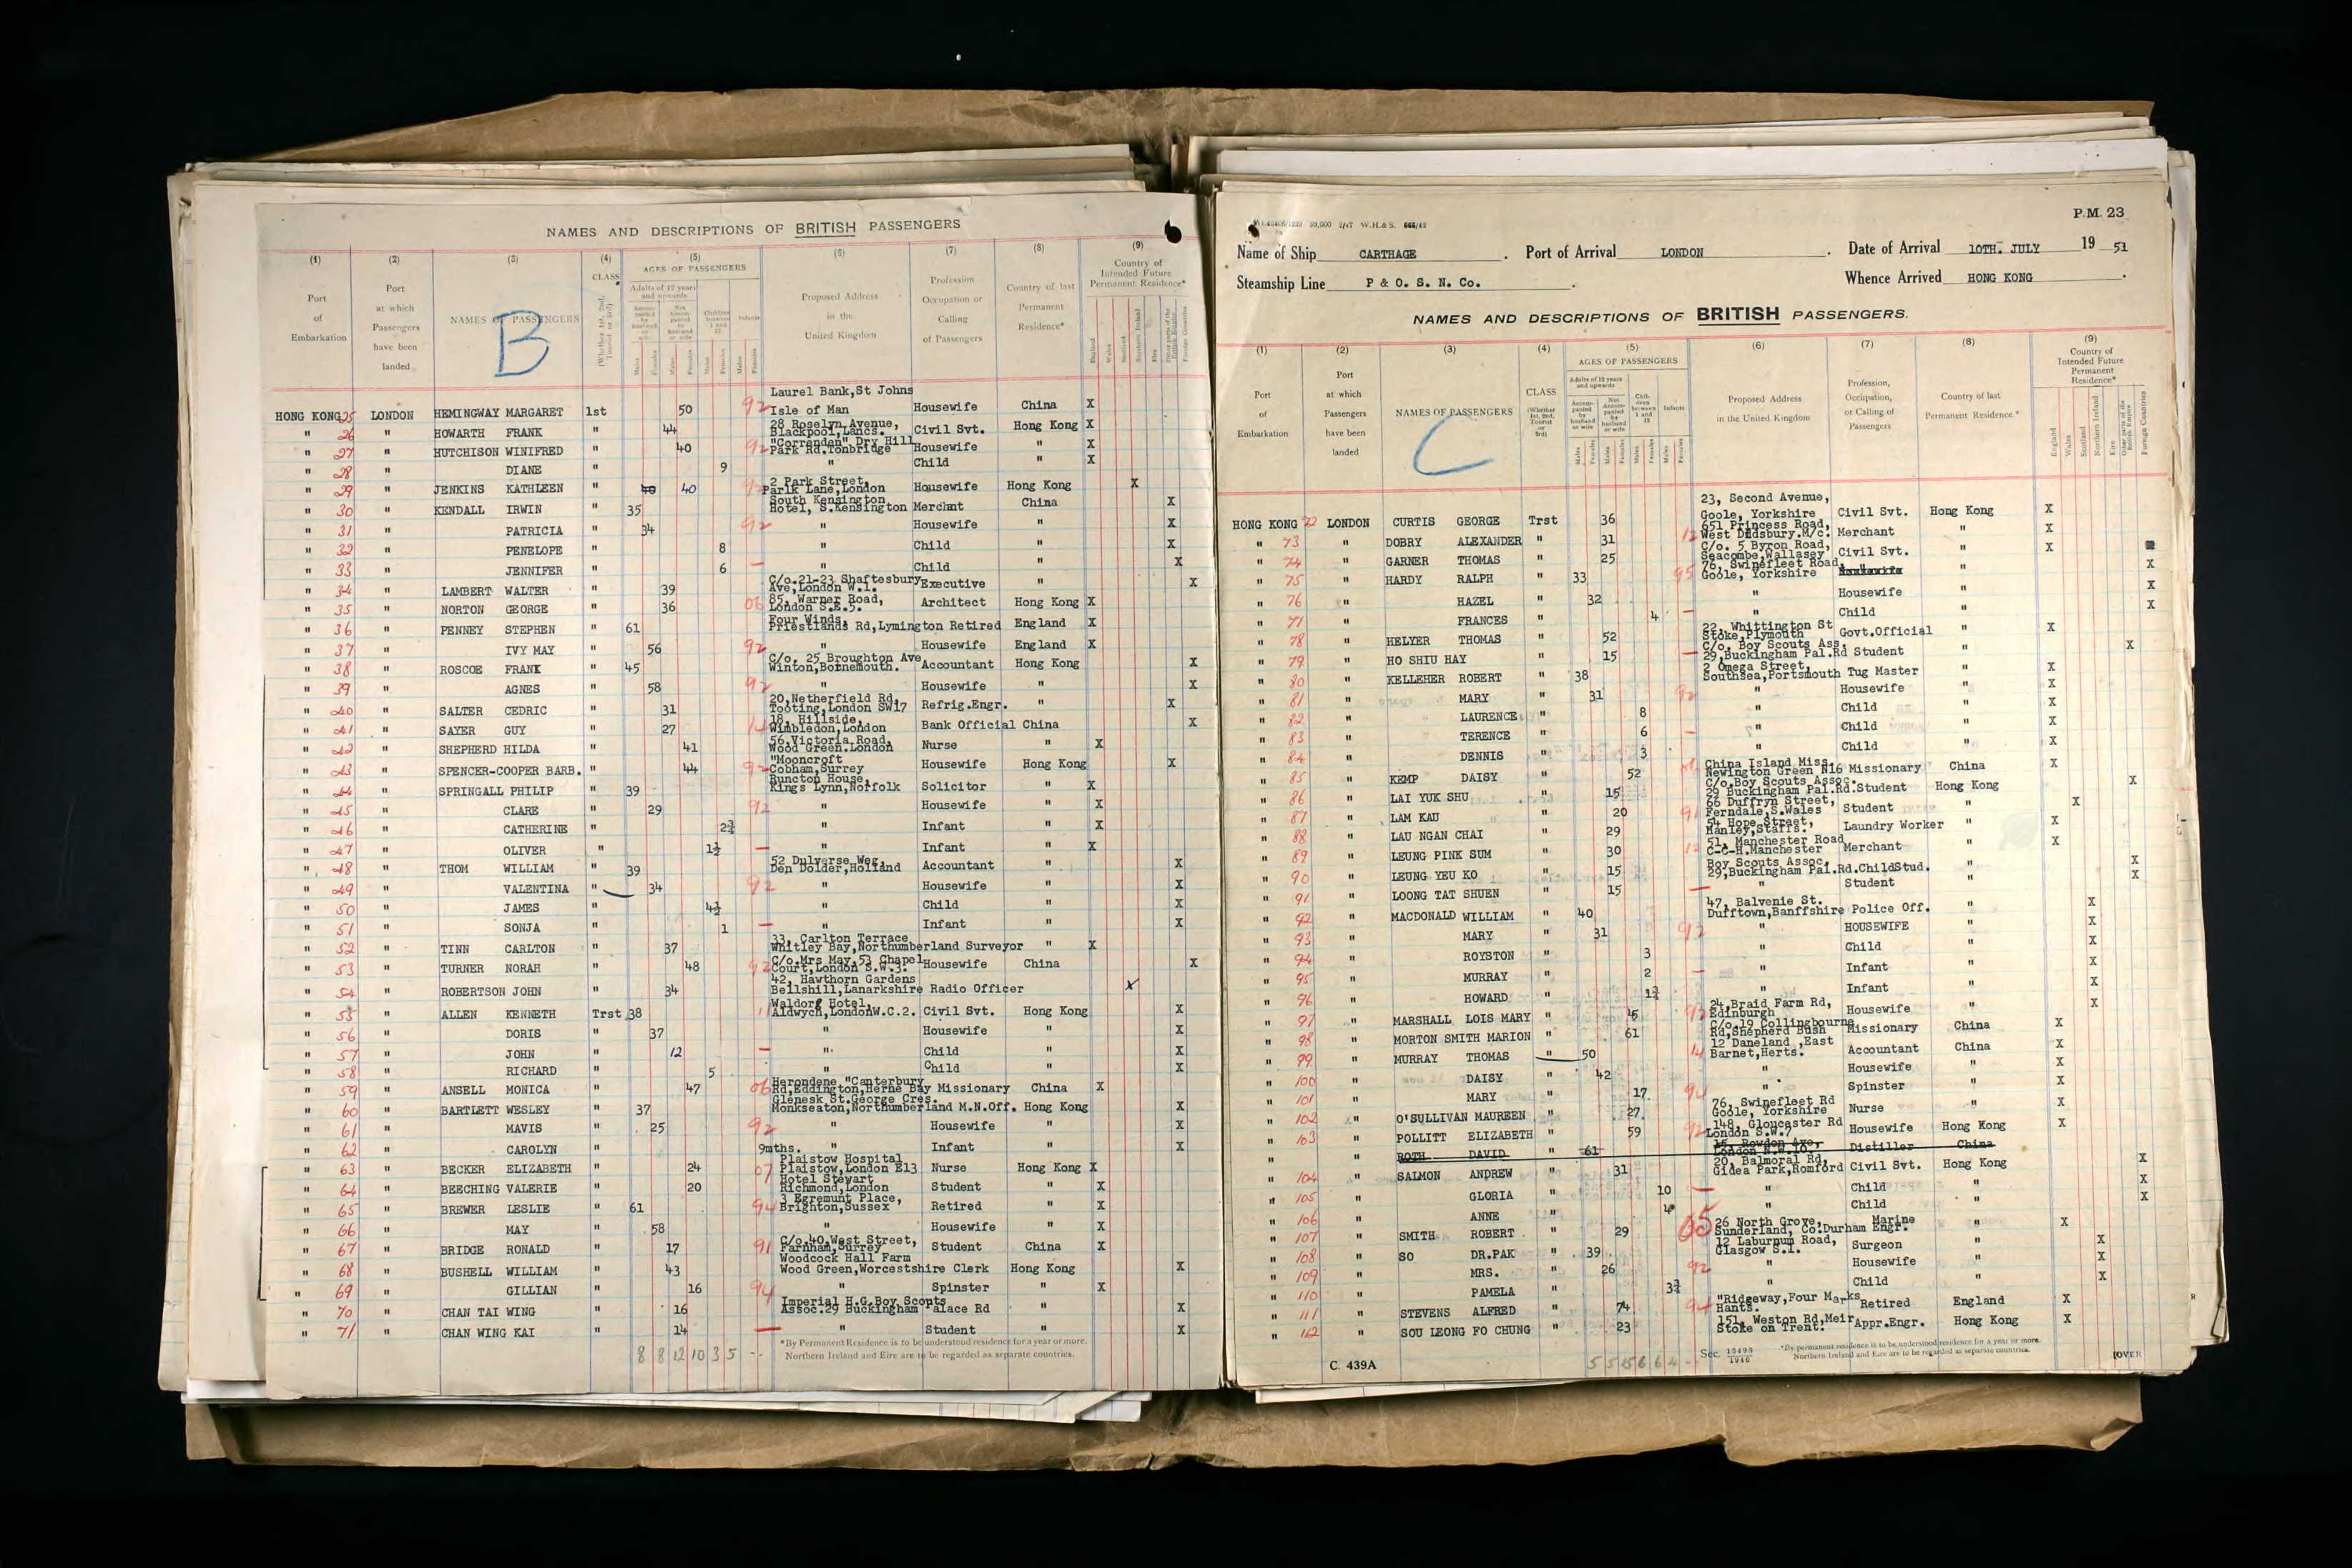 NAMES AND DESCRIPTIONS OF BRITISH PASSENGERS
(1) (2) (3) (4) (5) (6) (7) (8) (9)
Port of Embarkation
Port at which Passengers have been landed
NAMES OF PASSENGERS
B
CLASS (Whether 1st, 2nd, Tourist or 3rd)
AGES OF PASSENGERS
Adults of 12 years and upwards
Accompanied by husband or wife
Not Accompanied by husband or wife
Children between 1 and 12
Infants
Males Females Males Females Males Females Males Females
Proposed Address in the United Kingdom
Profession Occupation or Calling of Passengers
Country of last Permanent Residence*
Country of Intended Future Permanent Residence*
England Wales Scotland Northern Ireland Eire Other parts of the British Empire Foreign Countries
Laurel Bank,St Johns
HONG KONG 25 LONDON HEMINGWAY MARGARET 1st 50 92 Isle of Man Housewife China X
28 Roselyn Avenue,
" 26 " HOWARTH FRANK " 44 Blackpool,Lancs. Civil Svt. Hong Kong X
"Correnden" Dry Hill
" 27 " HUTCHISON WINIFRED " 40 92 Park Rd.Tonbridge Housewife " X
" 28 " DIANE " 9 " Child " X
2 Park Street,
" 29 " JENKINS KATHLEEN " 40 40 92 Park Lane,London Housewife Hong Kong X
South Kensington
" 30 " KENDALL IRWIN " 35 Hotel, S.Kensington Merchant China X
" 31 " PATRICIA " 34 92 " Housewife " X
" 32 " PENELOPE " 8 " Child " X
" 33 " JENNIFER " 6 — " Child " X
C/o.21-23 Shaftesbury
" 34 " LAMBERT WALTER " 39 Ave,London W.1. Executive " X
85, Warner Road,
" 35 " NORTON GEORGE " 36 06 London S.E.5. Architect Hong Kong X
Four Winds,
" 36 " PENNEY STEPHEN " 61 Priestlands Rd,Lymington Retired England X
" 37 " IVY MAY " 56 92 " Housewife England X
C/o. 25 Broughton Ave
" 38 " ROSCOE FRANK " 45 Winton,Bornemouth. Accountant Hong Kong X
" 39 " AGNES " 58 92 " Housewife " X
20,Netherfield Rd,
" 40 " SALTER CEDRIC " 31 Tooting,London SW17 Refrig.Engr. " X
18, Hillside,
" 41 " SAYER GUY " 27 14 Wimbledon,London Bank Official China X
56,Victoria Road,
" 42 " SHEPHERD HILDA " 41 Wood Green.London Nurse " X
"Mooncroft
" 43 " SPENCER-COOPER BARB. " 44 92 Cobham,Surrey Housewife Hong Kong X
Runcton House,
" 44 " SPRINGALL PHILIP " 39 Kings Lynn,Norfolk Solicitor " X
" 45 " CLARE " 29 92 " Housewife " X
" 46 " CATHERINE " 2¾ " Infant " X
" 47 " OLIVER " 1½ — " Infant " X
52 Dulverse Weg,
" 48 " THOM WILLIAM " 39 Den Dolder,Holland Accountant " X
" 49 " VALENTINA " 34 92 " Housewife " X
" 50 " JAMES " 4½ " Child " X
" 51 " SONJA " 1 — " Infant " X
33, Carlton Terrace
" 52 " TINN CARLTON " 37 Whitley Bay,Northumberland Surveyor " X
C/o.Mrs May,53 Chapel
" 53 " TURNER NORAH " 48 92 Court,London S.W.3. Housewife China X
42, Hawthorn Gardens
" 54 " ROBERTSON JOHN " 34 Bellshill,Lanarkshire Radio Officer X
Waldorf Hotel,
" 55 " ALLEN KENNETH Trst 38 11 Aldwych,LondonW.C.2. Civil Svt. Hong Kong X
" 56 " DORIS " 37 " Housewife " X
" 57 " JOHN " 12 — " Child " X
" 58 " RICHARD " 5 " Child " X
Herondene "Canterbury
" 59 " ANSELL MONICA " 47 06 Rd,Eddington,Herne Bay Missionary China X
Glenesk St.George Cres.
" 60 " BARTLETT WESLEY " 37 Monkseaton,Northumberland M.N.Off. Hong Kong X
" 61 " MAVIS " 25 92 " Housewife " X
" 62 " CAROLYN " 9mths. " Infant " X
Plaistow Hospital
" 63 " BECKER ELIZABETH " 24 07 Plaistow,London E13 Nurse Hong Kong X
Hotel Stewart
" 64 " BEECHING VALERIE " 20 Richmond,London Student " X
3 Egremunt Place,
" 65 " BREWER LESLIE " 61 94 Brighton,Sussex Retired " X
" 66 " MAY " 58 " Housewife " X
C/o.40,West Street,
" 67 " BRIDGE RONALD " 17 91 Farnham,Surrey Student China X
Woodcock Hall Farm
" 68 " BUSHELL WILLIAM " 43 Wood Green,Worcestshire Clerk Hong Kong X
" 69 " GILLIAN " 16 94 " Spinster " X
Imperial H.G.Boy Scouts
" 70 " CHAN TAI WING " 16 Assoc.29 Buckingham Palace Rd " X
" 71 " CHAN WING KAI " 14 — " Student " X
8 8 12 10 3 5 - -
*By Permanent Residence is to be understood residence for a year or more.
Northern Ireland and Eire are to be regarded as separate countries.
P.M. 23
Name of Ship CARTHAGE . Port of Arrival LONDON . Date of Arrival 10TH. JULY 19 51
Steamship Line P & O. S. N. Co. . Whence Arrived HONG KONG .
NAMES AND DESCRIPTIONS OF BRITISH PASSENGERS.
(1) (2) (3) (4) (5) (6) (7) (8) (9)
Port of Embarkation
Port at which Passengers have been landed
NAMES OF PASSENGERS
C
CLASS (Whether 1st, 2nd, Tourist or 3rd)
AGES OF PASSENGERS
Adults of 12 years and upwards
Accompanied by husband or wife
Not Accompanied by husband or wife
Children between 1 and 12
Infants
Males Females Males Females Males Females Males Females
Proposed Address in the United Kingdom
Profession, Occupation, or Calling of Passengers
Country of last Permanent Residence *
Country of Intended Future Permanent Residence*
England Wales Scotland Northern Ireland Eire Other parts of the British Empire Foreign Countries
23, Second Avenue,
HONG KONG 72 LONDON CURTIS GEORGE Trst 36 Goole, Yorkshire Civil Svt. Hong Kong X
651 Princess Road,
" 73 " DOBRY ALEXANDER " 31 12 West Didsbury.M/c. Merchant " X
C/o. 5 Byron Road,
" 74 " GARNER THOMAS " 25 Seacombe,Wallasey Civil Svt. " X
76, Swinefleet Road,
" 75 " HARDY RALPH " 33 95 Goole, Yorkshire " " X
" 76 " HAZEL " 32 " Housewife " X
" 77 " FRANCES " 4 — " Child " X
22, Whittington St
" 78 " HELYER THOMAS " 52 Stoke,Plymouth Govt.Official " X
C/o. Boy Scouts Ass,
" 79 " HO SHIU HAY " 15 — 29,Buckingham Pal.Rd Student " X
2 Omega Street,
" 80 " KELLEHER ROBERT " 38 Southsea,Portsmouth Tug Master " X
" 81 " MARY " 31 92 " Housewife " X
" 82 " LAURENCE " 8 " Child " X
" 83 " TERENCE " 6 — " Child " X
" 84 " DENNIS " 3 " Child " X
China Island Miss.
" 85 " KEMP DAISY " 52 Newington Green N16 Missionary China X
C/o.Boy Scouts Assoc.
" 86 " LAI YUK SHU " 15 29 Buckingham Pal.Rd.Student Hong Kong X
66 Duffryn Street,
" 87 " LAM KAU " 20 91 Ferndale,S.Wales Student " X
54 Hope Street,
" 88 " LAU NGAN CHAI " 29 Hanley,Staffs. Laundry Worker " X
51, Manchester Road
" 89 " LEUNG PINK SUM " 30 12 C-C-H.Manchester Merchant " X
Boy Scouts Assoc,
" 90 " LEUNG YEU KO " 15 29,Buckingham Pal.Rd.ChildStud. " X
" 91 " LOONG TAT SHUEN " 15 — " Student " X
47, Balvenie St.
" 92 " MACDONALD WILLIAM " 40 Dufftown,Banffshire Police Off. " X
" 93 " MARY " 31 92 " HOUSEWIFE " X
" 94 " ROYSTON " 3 " Child " X
" 95 " MURRAY " 2 — " Infant " X
" 96 " HOWARD " 1¾ " Infant " X
24,Braid Farm Rd,
" 97 " MARSHALL LOIS MARY " 92 Edinburgh Housewife " X
C/o.19 Collingbourne
" 98 " MORTON SMITH MARION " 61 Rd,Shepherd Bush Missionary China X
12 Daneland ,East
" 99 " MURRAY THOMAS " 50 14 Barnet,Herts. Accountant China X
" 100 " DAISY " 42 " Housewife " X
" 101 " MARY " 17 94 " Spinster " X
76, Swinefleet Rd
" 102 " O'SULLIVAN MAUREEN " 27 Goole, Yorkshire Nurse " X
148, Gloucester Rd
" 103 " POLLITT ELIZABETH " 59 92 London S.W.7 Housewife Hong Kong X
15, Rowdon Ave,
" " ROTH DAVID " 61 London N.W.10. Distiller China
20, Balmoral Rd,
" 104 " SALMON ANDREW " 31 Gidea Park,Romford Civil Svt. Hong Kong X
" 105 " GLORIA " 10 — " Child " X
" 106 " ANNE " 4 " Child " X
26 North Grove, Marine
" 107 " SMITH ROBERT " 29 05 Sunderland, Co.Durham Engr. " X
12 Laburnum Road,
" 108 " SO DR.PAK " 39 Glasgow S.1. Surgeon " X
" 109 " MRS. " 26 92 " Housewife " X
" 110 " PAMELA " 3¾ " Child " X
"Ridgeway,Four Marks
" 111 " STEVENS ALFRED " 74 94 Hants. Retired England X
151, Weston Rd,Meir
" 112 " SOU LEONG FO CHUNG " 23 Stoke on Trent. Appr.Engr. Hong Kong X
C. 439A
*By permanent residence is to be understood residence for a year or more.
Northern Ireland and Eire are to be regarded as separate countries.
[OVER